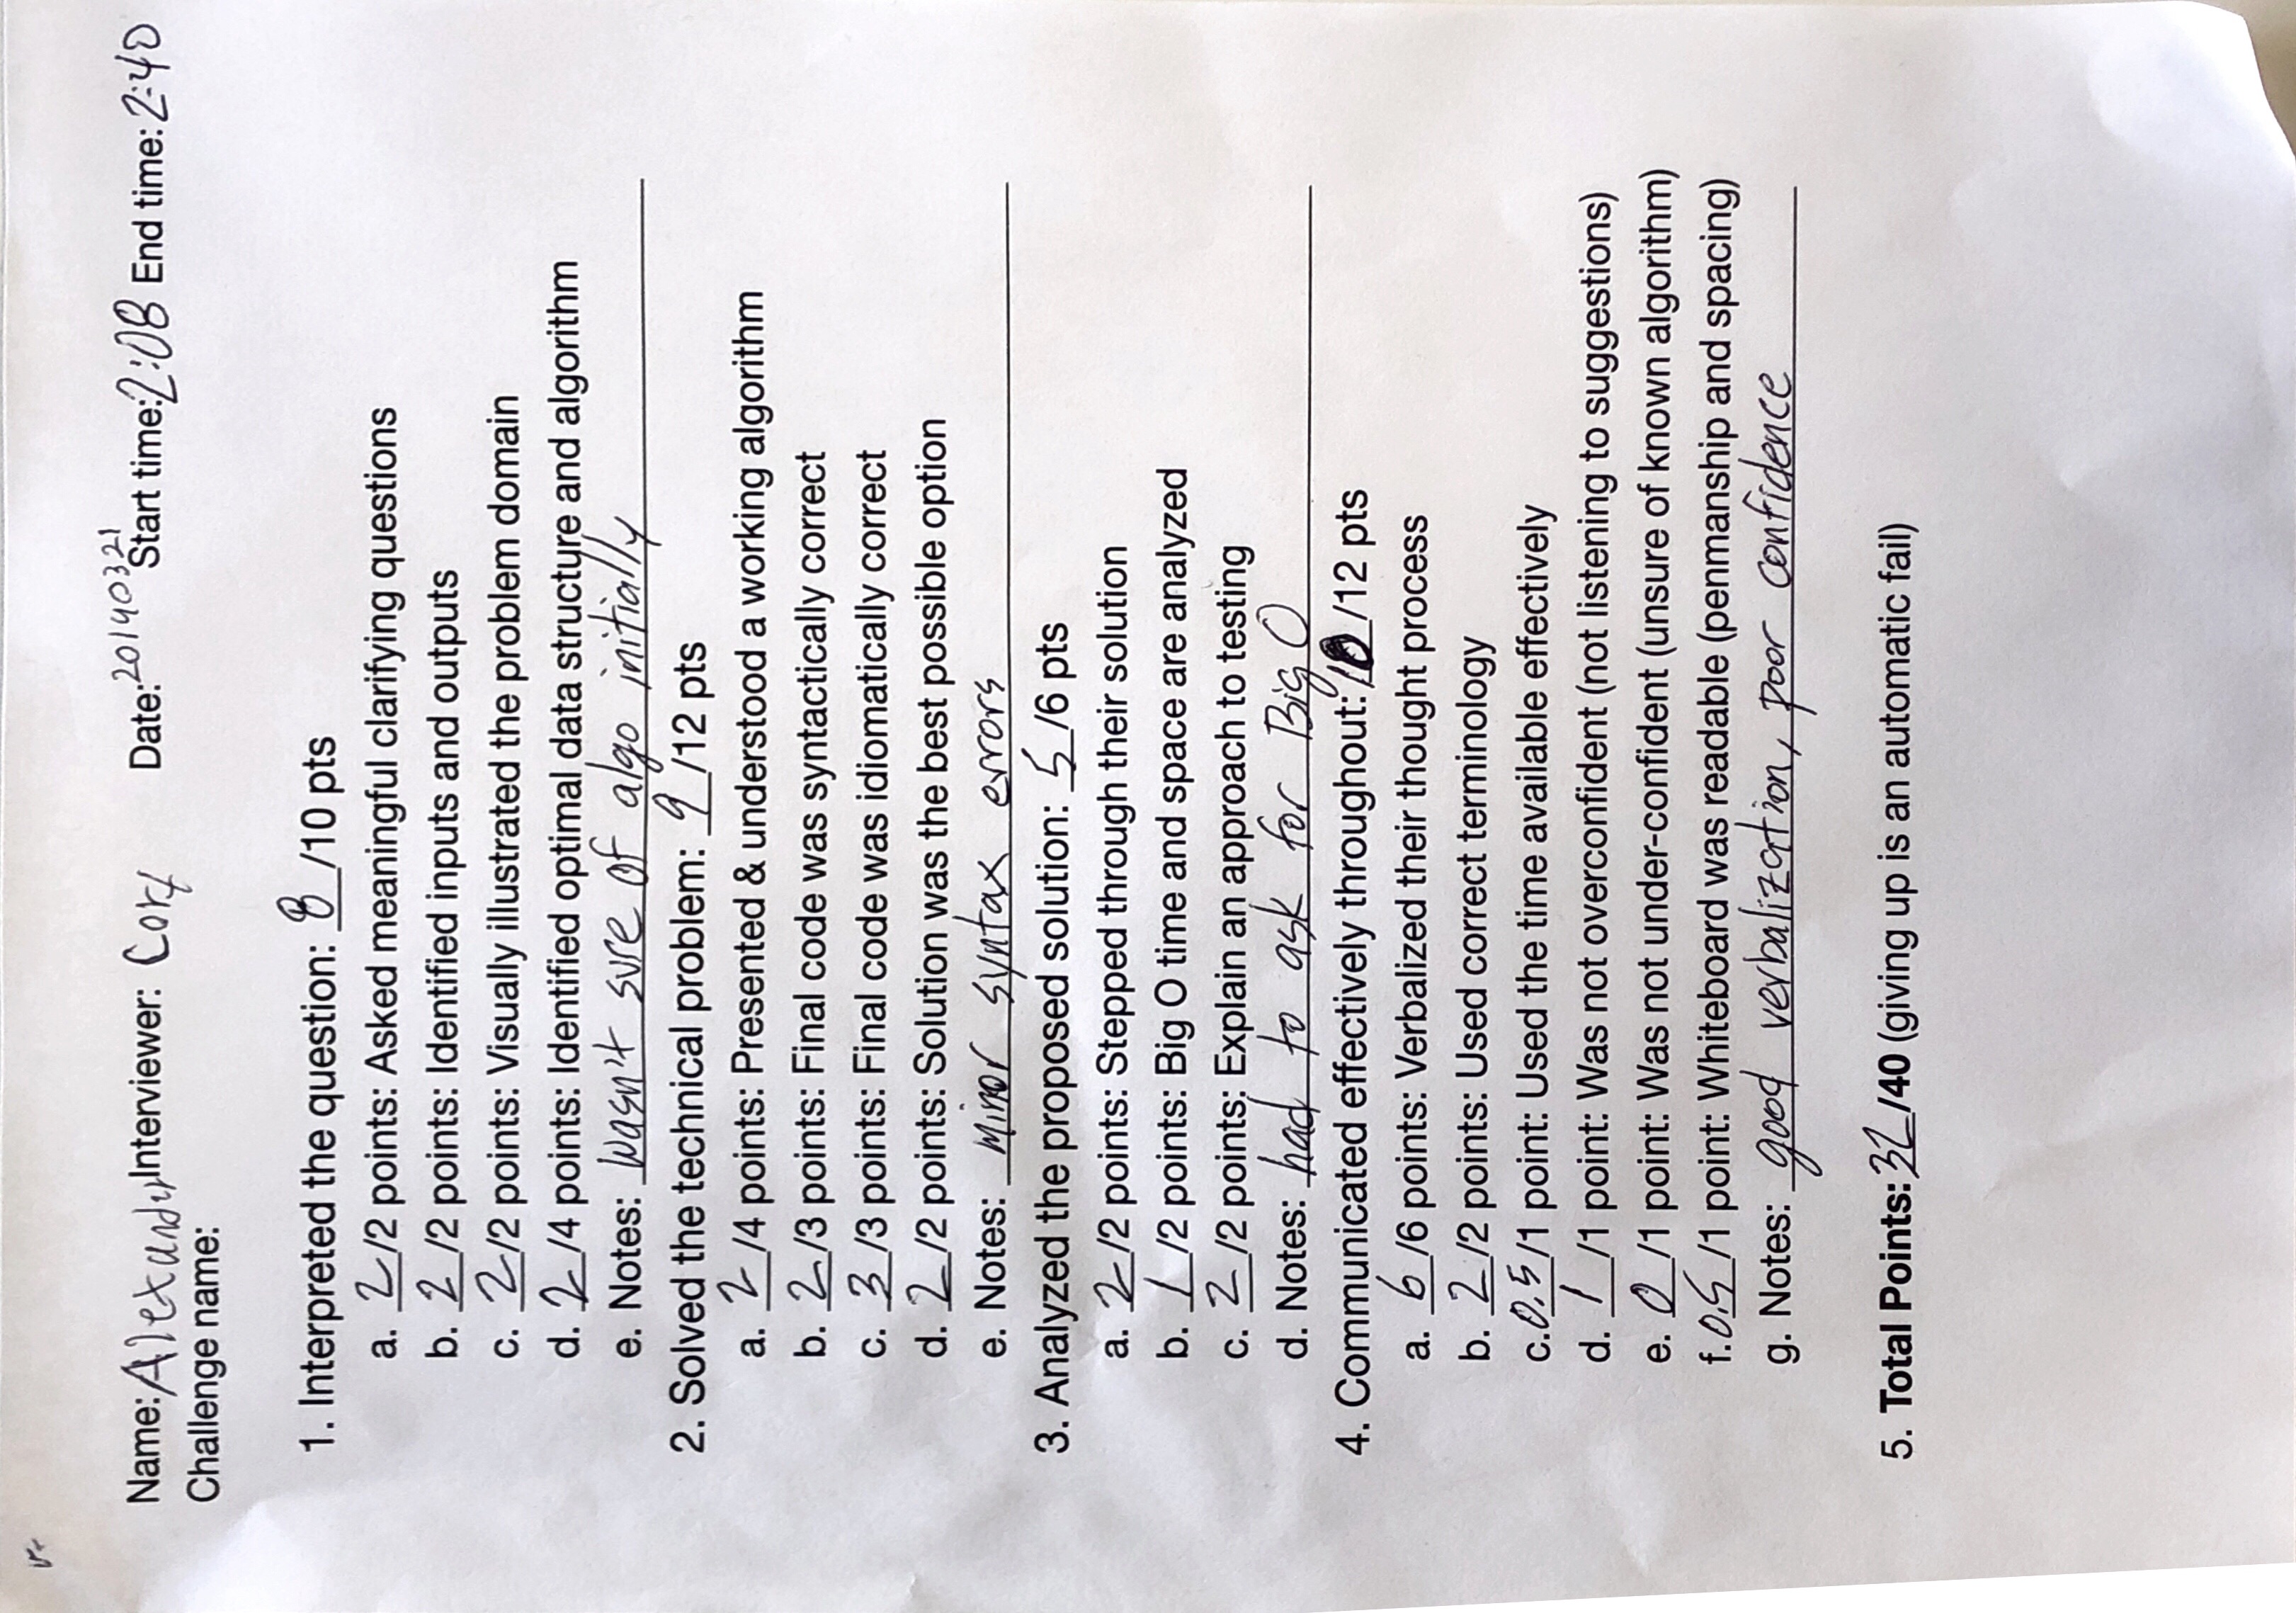 Name: Alexandr Interviewer: Cory Date: 20190321 Start time: 2:08 End time: 2:40
Challenge name:
1. Interpreted the question: 8 /10 pts
a. 2 /2 points: Asked meaningful clarifying questions
b. 2 /2 points: Identified inputs and outputs
c. 2 /2 points: Visually illustrated the problem domain
d. 2 /4 points: Identified optimal data structure and algorithm
e. Notes: wasn't sure of algo initially
2. Solved the technical problem: 9 /12 pts
a. 2 /4 points: Presented & understood a working algorithm
b. 2 /3 points: Final code was syntactically correct
c. 3 /3 points: Final code was idiomatically correct
d. 2 /2 points: Solution was the best possible option
e. Notes: minor syntax errors
3. Analyzed the proposed solution: 5 /6 pts
a. 2 /2 points: Stepped through their solution
b. 1 /2 points: Big O time and space are analyzed
c. 2 /2 points: Explain an approach to testing
d. Notes: had to ask for Big O
4. Communicated effectively throughout: 10 /12 pts
a. 6 /6 points: Verbalized their thought process
b. 2 /2 points: Used correct terminology
c. 0.5 /1 point: Used the time available effectively
d. 1 /1 point: Was not overconfident (not listening to suggestions)
e. 0 /1 point: Was not under-confident (unsure of known algorithm)
f. 0.5 /1 point: Whiteboard was readable (penmanship and spacing)
g. Notes: good verbalization, poor confidence
5. Total Points: 32 /40 (giving up is an automatic fail)